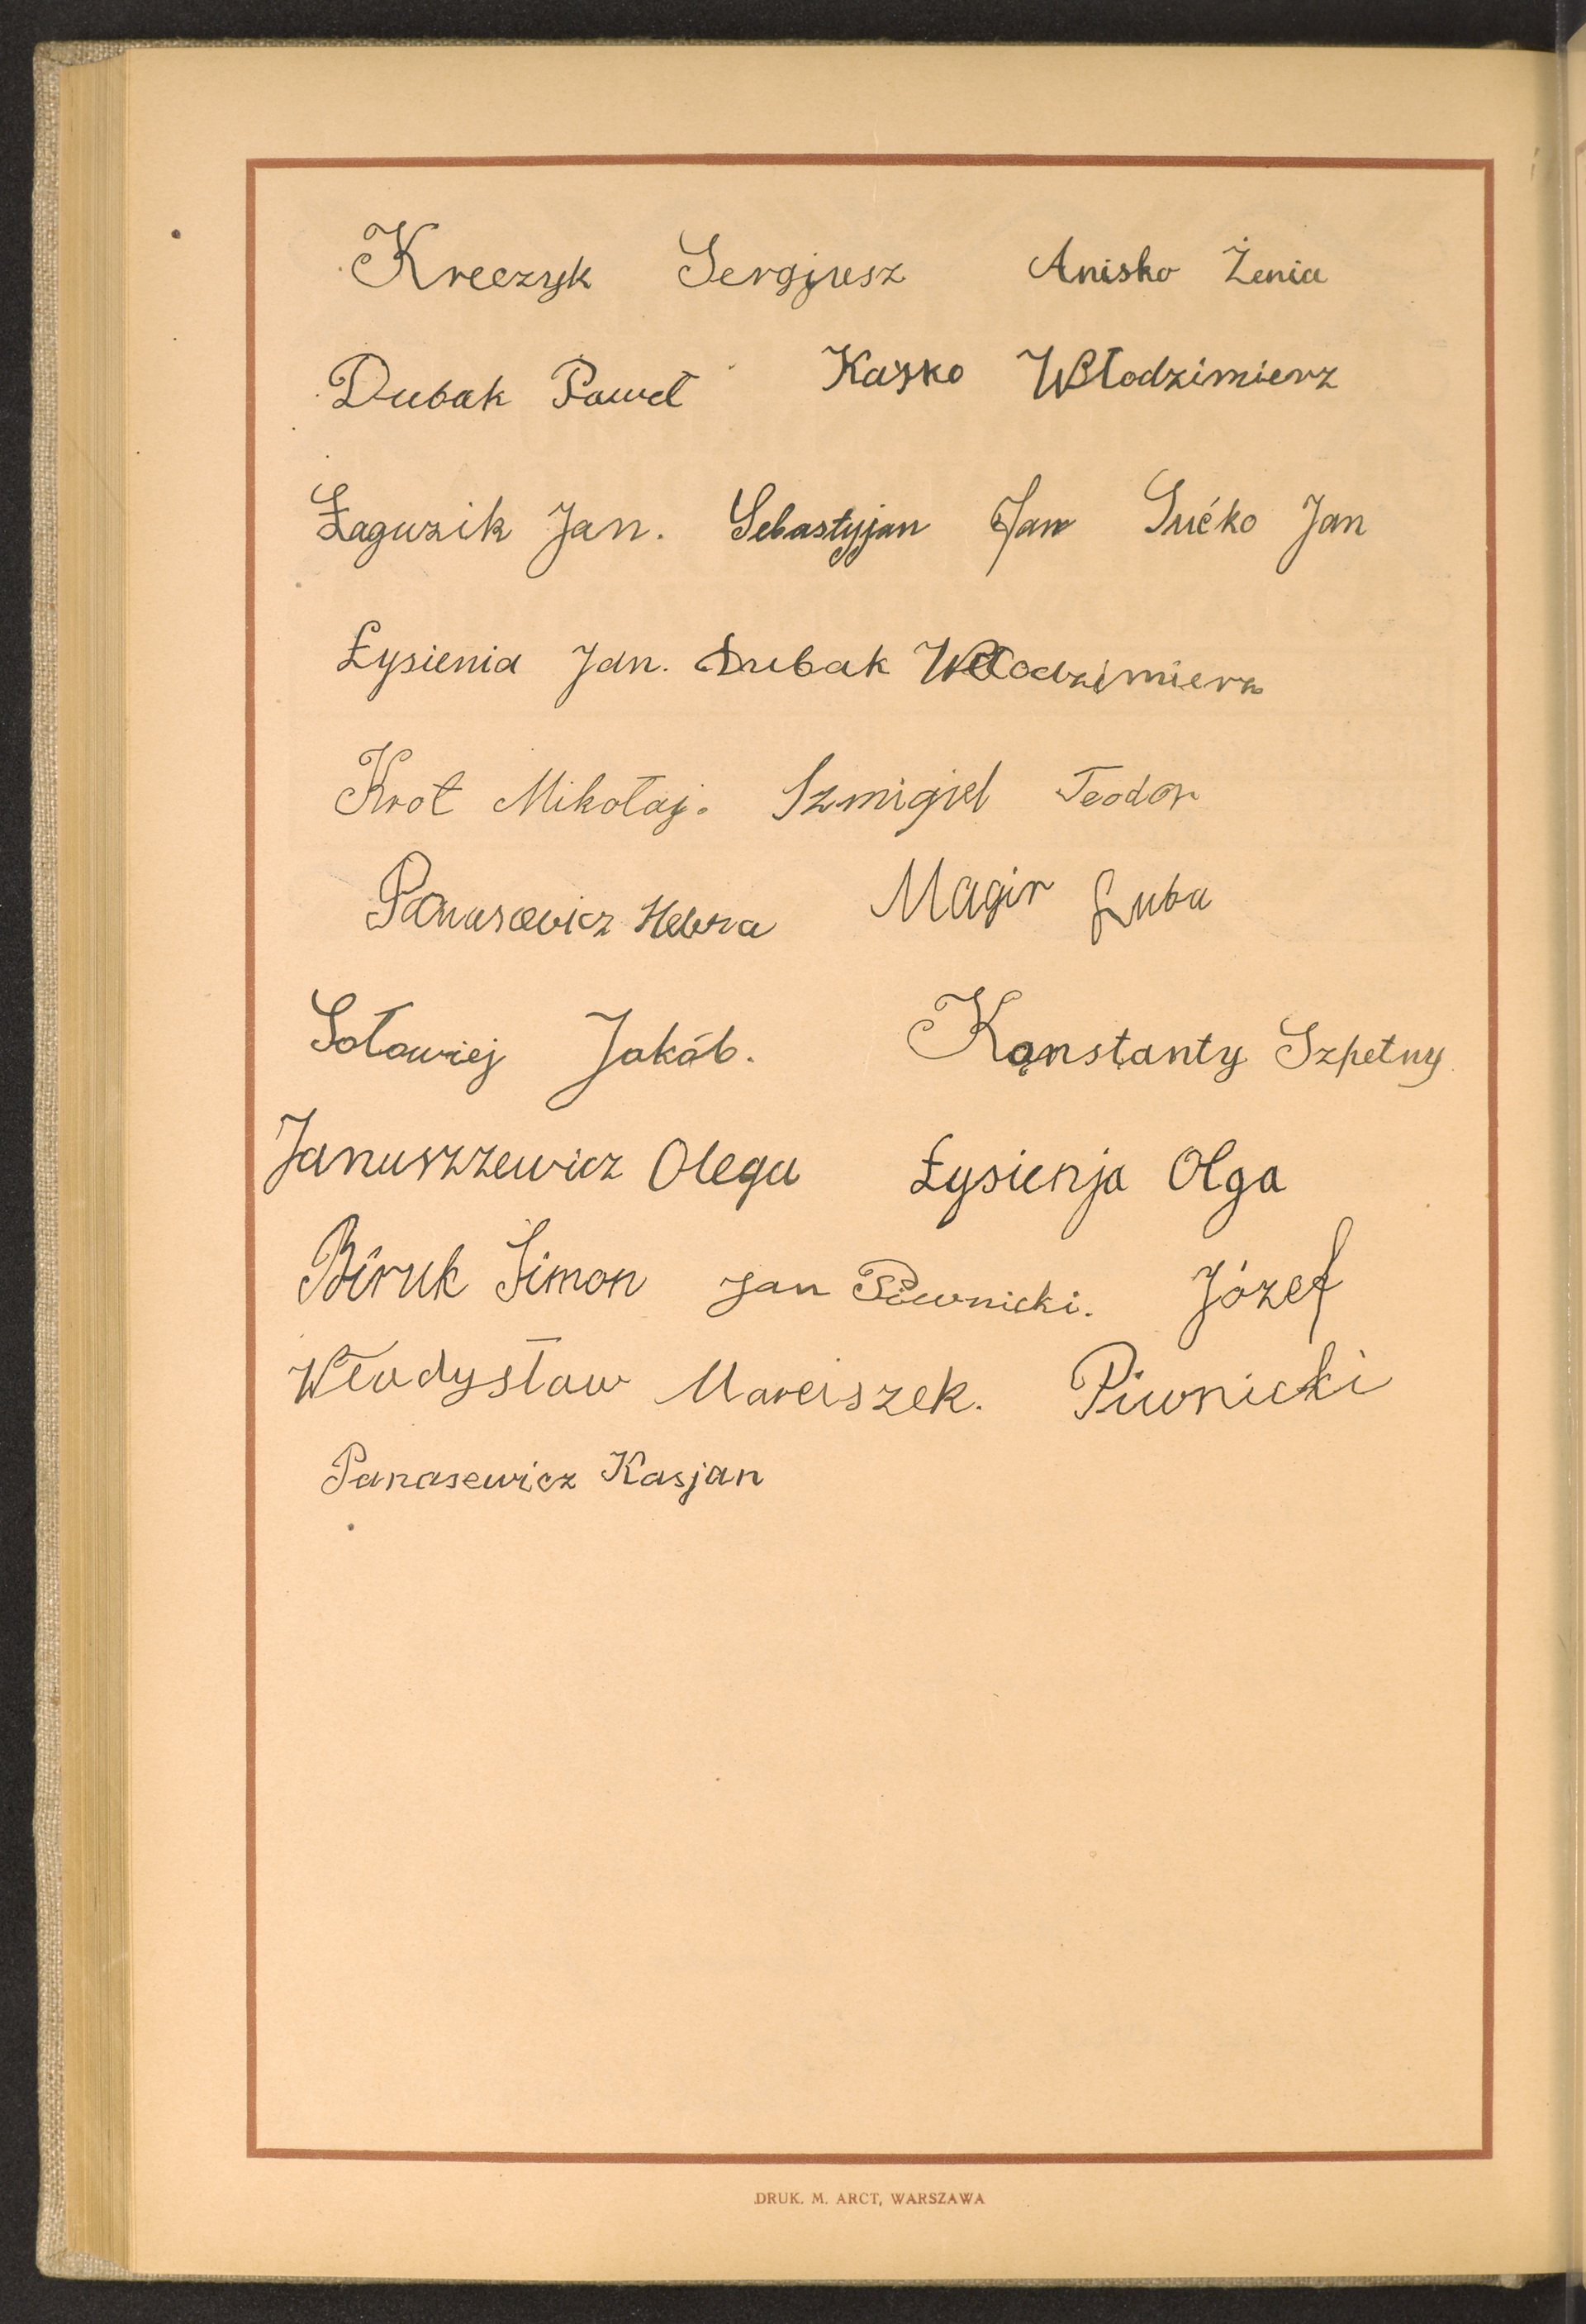 Kreczyk Sergjusz Anisko Żenia
Dubak Paweł Kasko Włodzimierz
Łaguzik Jan. Sebastyjan Jan Sućko Jan
Łysienia Jan. Dubak Włodzimierz
Krot Mikołaj. Szmigiel Teodor
Panasewicz Magir Luba
Sołowiej Jakób. Konstanty Szpetny
Januszzewicz Olega Łysienja Olga
Biruk Simon Jan Piwnicki. Józef
Władysław Marciszek. Piwnicki
Panasewicz Kasjan
DRUK. M. ARCT, WARSZAWA